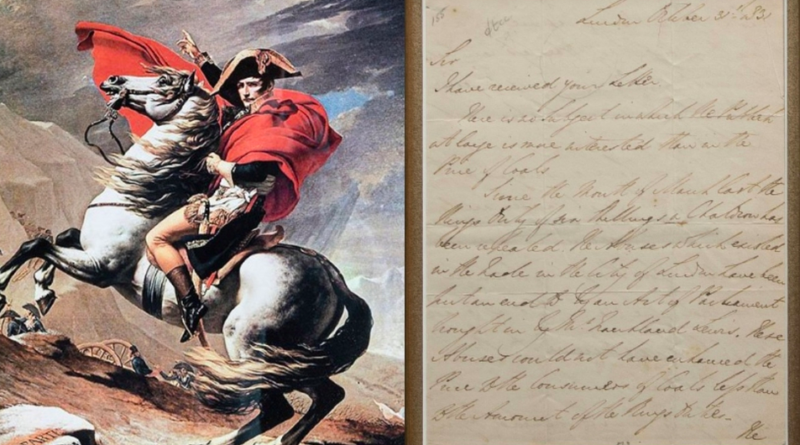 London October 31st 1831
Sir
I have received your Letter
There is no Subject in which the Publick
at large is more interested than in the
Price of Coals
Since the Month of March last the
Kings Duty of six shillings a Chaldron has
been repealed. The Abuses which existed
in the Trade in the City of London have been
put an end to by an Act of Parliament
brought in by Mr Frankland Lewis. These
Abuses could not have enhanced the
Price to the Consumers of Coals less than
to the amount of the Kings Duties.
The